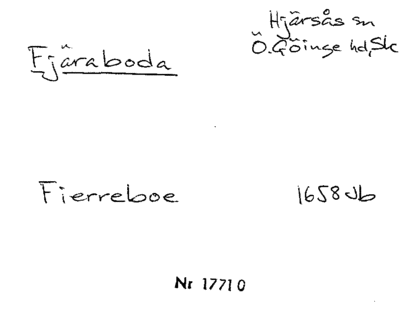 Hjärsås sn
Fjäraboda
Ö. Göinge hd, Sk
Fierreboe 1658 Jb
Nr 17710